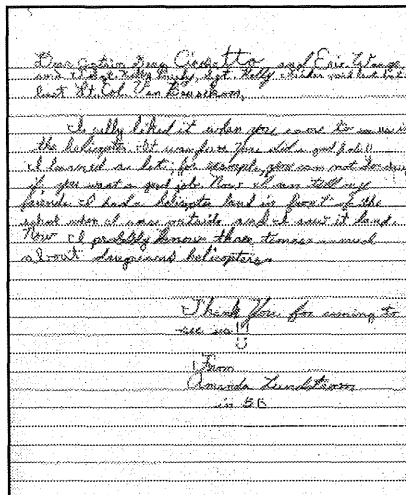 Dear Captain Doug Goretto and Eric Wange
and Sgt. Kelly Sgt. Kelly and last but not
least Lt. Col. Van
I really liked it when you came to see us in
the helicopter. It was fun. You did a good job!!
I learned a lot; for example, you can not do drugs
if you want a good job. Now I can tell my
friends I had a helicopter land in front of the
school when I was outside and I saw it land.
Now I probably know three times as much
about drugs and helicopters.
Thank You for coming to
see us!!
From
Amanda Lundstrom
in 5B